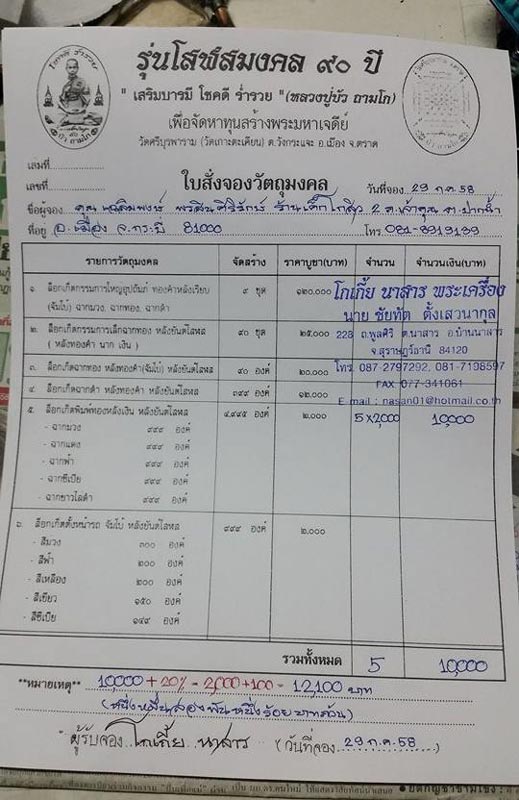 รุ่นโสฬสมงคล ๙๐ ปี
" เสริมบารมี โชคดี ร่ำรวย "(หลวงปู่บัว ถามโก)
เพื่อจัดหาทุนสร้างพระมหาเจดีย์
วัดศรีบุรพาราม (วัดเกาะตะเคียน) ต.วังกระแจะ อ.เมือง จ.ตราด
เล่มที่
เลขที่
ใบสั่งจองวัตถุมงคล
วันที่จอง 29 ก.ค. 58
ชื่อผู้จอง คุณ
ที่อยู่ อ.เมือง จ.กระบี่ 81000 โทร 081-8919199
รายการวัตถุมงคล จัดสร้าง ราคาบูชา(บาท) จำนวน จำนวนเงิน(บาท)
๑. ล็อกเก็ตกรรมการใหญ่อุปถัมภ์ ทองคำหลังเรียบ ๙ ชุด ๑๒๐,๐๐๐
(จัมโบ้) ฉากม่วง, ฉากทอง, ฉากดำ
โกเกี้ย นาสาร พระเครื่อง
นาย ชัยทัต ตั้งเสวนากุล
๒. ล็อกเก็ตกรรมการเลี่ยมฉากทอง หลังยันต์โสฬส ๙๐ ชุด ๒๕,๐๐๐
( หลังทองคำ นาก เงิน )
228 ถ.พูลศิริ ต.นาสาร อ.บ้านนาสาร
จ.สุราษฎร์ธานี 84120
๓. ล็อกเก็ตฉากทอง หลังทองคำ(จัมโบ้) หลังยันต์โสฬส ๙๐ องค์ ๒๐,๐๐๐
โทร. 087-2797292, 081-7198597
๔. ล็อกเก็ตฉากดำ หลังทองคำ หลังยันต์โสฬส ๓๙๙ องค์ ๑๒,๐๐๐
FAX 077-341061
E mail : nasan01@hotmail.co.th
๕. ล็อกเก็ตพิมพ์ทองหลังเงิน หลังยันต์โสฬส ๔,๙๙๕ องค์ ๒,๐๐๐ 5 x 2,000 10,000
- ฉากม่วง ๙๙๙ องค์
- ฉากแดง ๙๙๙ องค์
- ฉากฟ้า ๙๙๙ องค์
- ฉากซีเปีย ๙๙๙ องค์
- ฉากขาวไล่ดำ ๙๙๙ องค์
๖. ล็อกเก็ตตั้งหน้ารถ จัมโบ้ หลังยันต์โสฬส ๙๙๙ องค์ ๒,๐๐๐
- สีม่วง ๓๐๐ องค์
- สีฟ้า ๒๐๐ องค์
- สีเหลือง ๒๐๐ องค์
- สีเขียว ๑๕๐ องค์
- สีซีเปีย ๑๔๙ องค์
รวมทั้งหมด 5 10,000
**หมายเหตุ** 10,000 + 20% = 2,000 + 100 = 12,100 บาท
(หนึ่งหมื่นสองพันหนึ่งร้อยบาทถ้วน)
ผู้รับจอง โกเกี้ย นาสาร (วันที่จอง 29 ก.ค. 58)